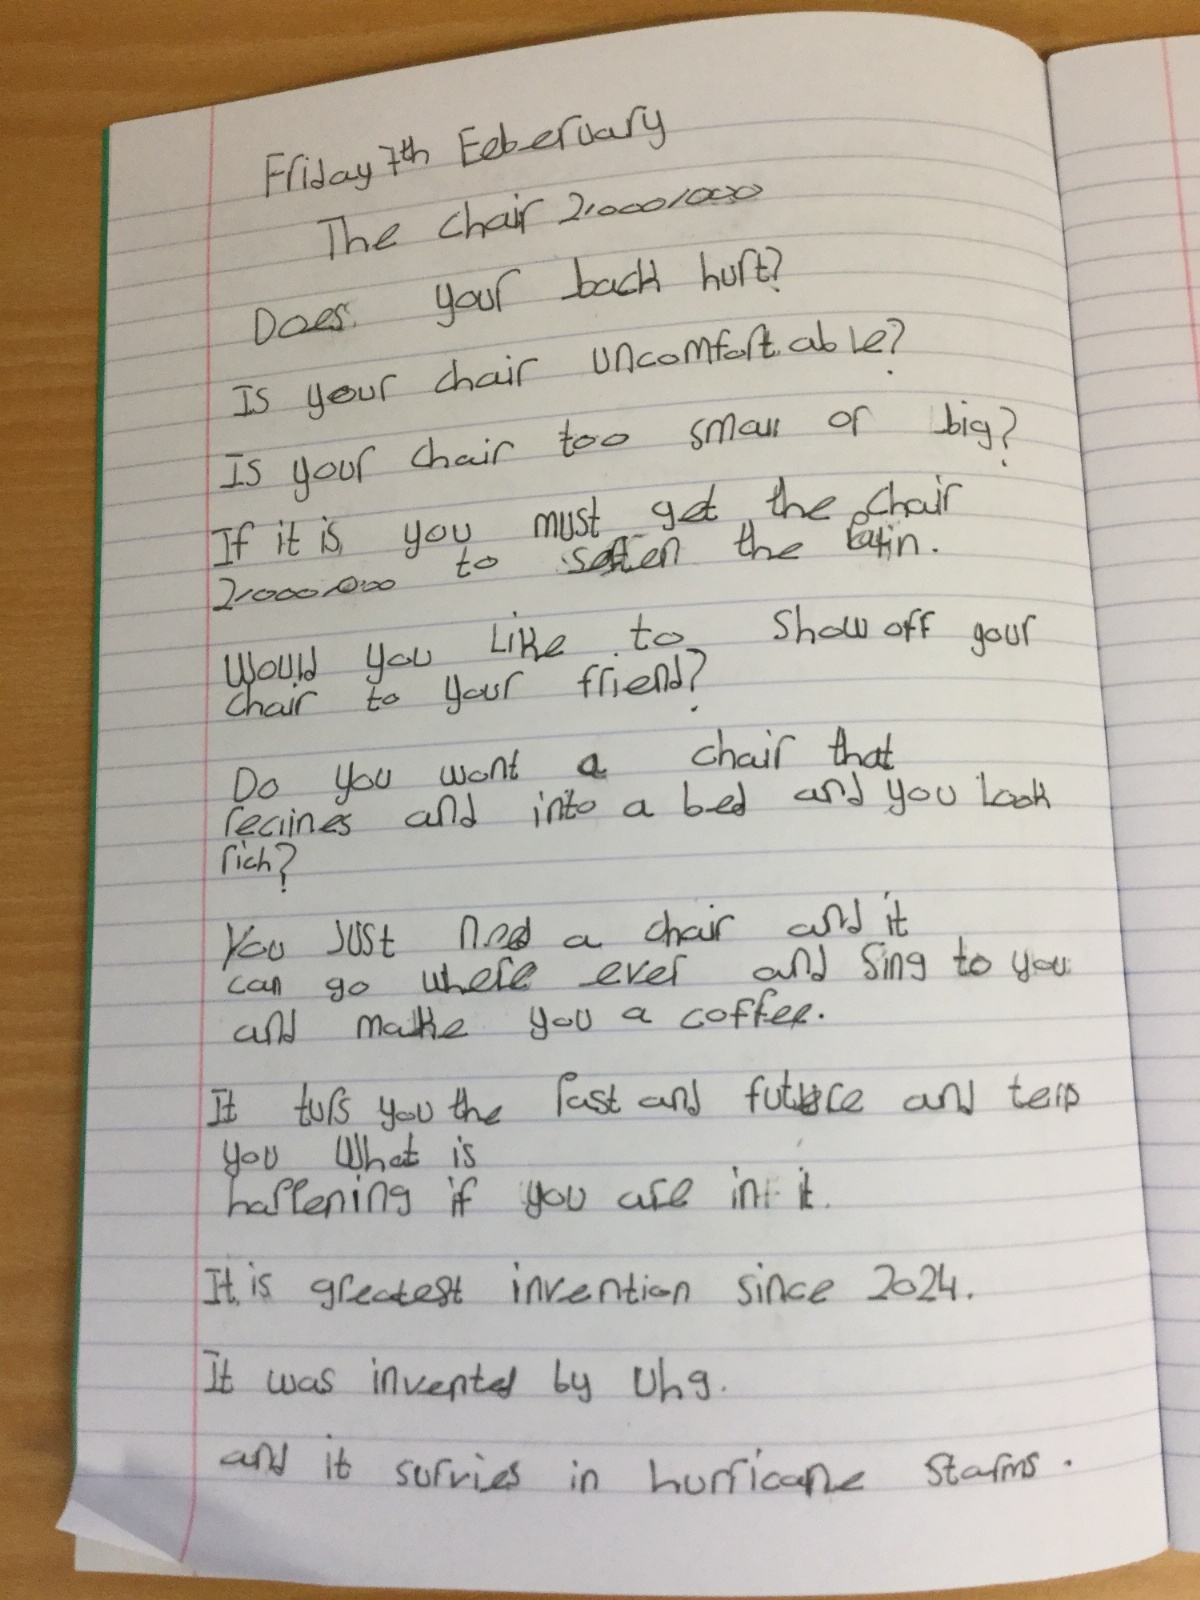 Friday 7th Feberuary
The chair 2,000,000
Does your back hurt?
Is your chair uncomfortable?
Is your chair too small or big?
If it is you must get the chair
2,000,000 to soften the pain.
Would you like to show off your
chair to your friend?
Do you want a chair that
reclines and into a bed and you look
rich?
You Just need a chair and it
can go where ever and sing to you
and make you a coffee.
It tuls you the past and future and tells
you what is
happening if you are in it.
It is greatest invention since 2024.
It was invented by Uhg.
and it survies in hurricane storms.